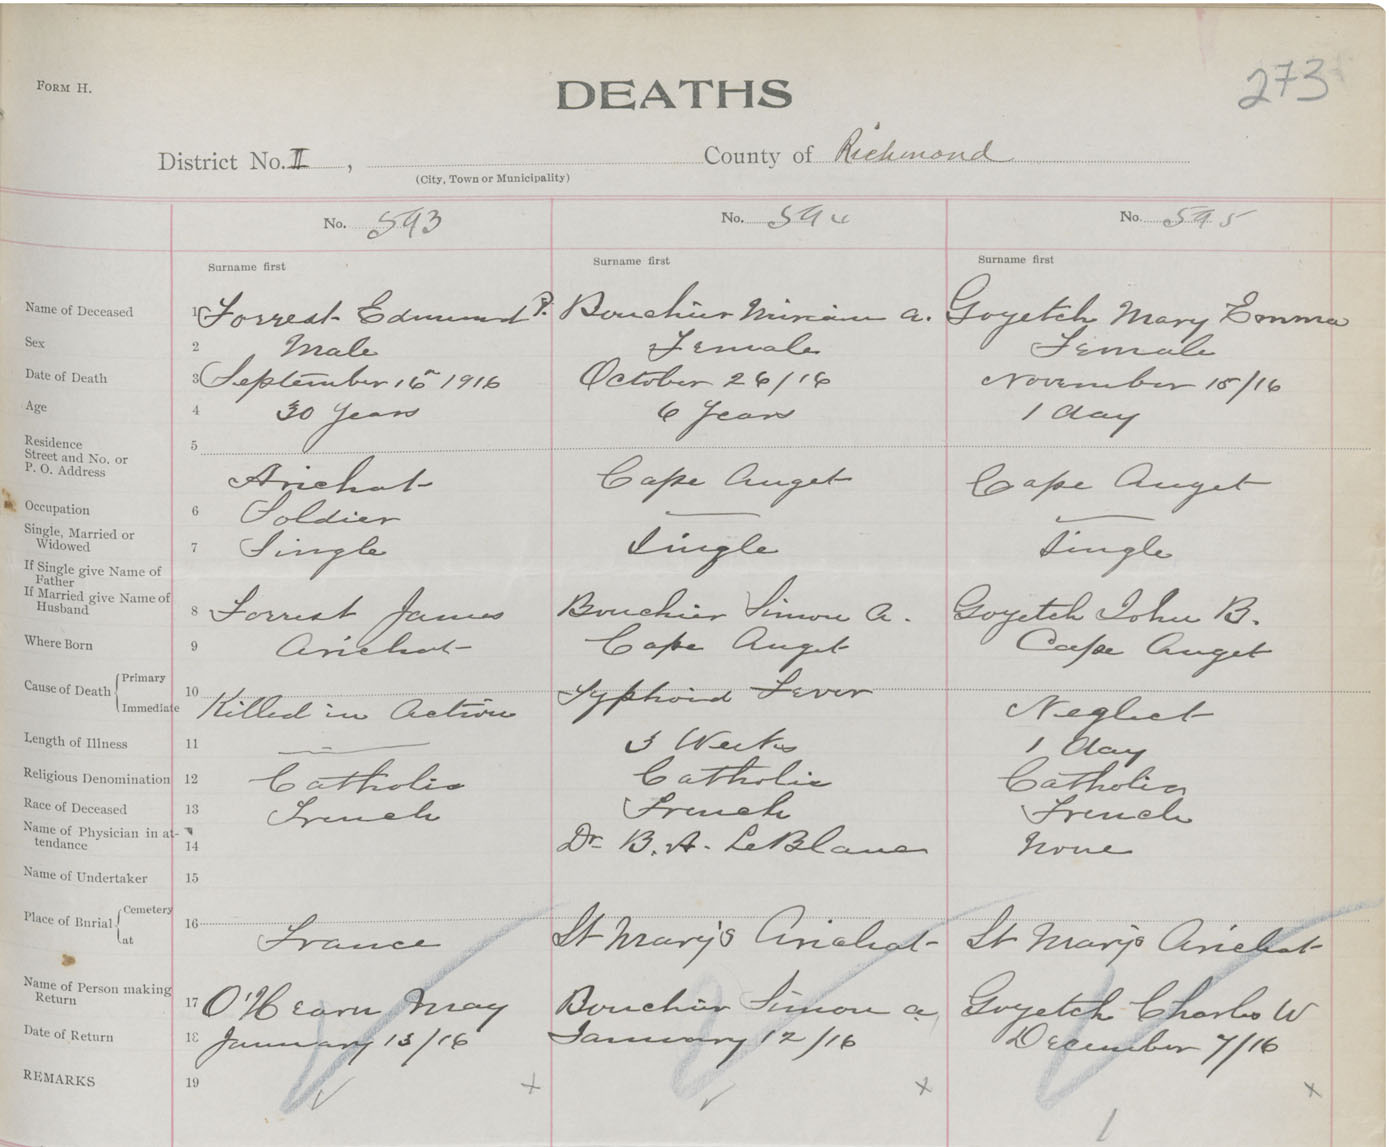 FORM H.
DEATHS
273
District No. II , County of Richmond
(City, Town or Municipality)
No. 593 No. 594 No. 595
Surname first Surname first Surname first
Name of Deceased 1 Forrest Edmund P. Bouchier Miriam A. Goyetch Mary Emma
Sex 2 Male Female Female
Date of Death 3 September 16 1916 October 26/16 November 15/16
Age 4 30 Years 6 Years 1 day
Residence 5
Street and No. or
P. O. Address Arichat Cape Auget Cape Auget
Occupation 6 Soldier
Single, Married or
Widowed 7 Single Single Single
If Single give Name of
Father
If Married give Name of
Husband 8 Forrest James Bouchier Simon A. Goyetch John B.
Where Born 9 Arichat Cape Auget Cape Auget
Cause of Death Primary 10 Typhoid Fever
Immediate Killed in Action Neglect
Length of Illness 11 3 Weeks 1 day
Religious Denomination 12 Catholic Catholic Catholic
Race of Deceased 13 French French French
Name of Physician in at-
tendance 14 Dr. B. A. LeBlanc None
Name of Undertaker 15
Place of Burial Cemetery 16
at France St Mary's Arichat St Mary's Arichat
Name of Person making
Return 17 O'Hearn May Bouchier Simon A Goyetch Charles W
Date of Return 18 January 13/16 January 12/16 December 7/16
REMARKS 19